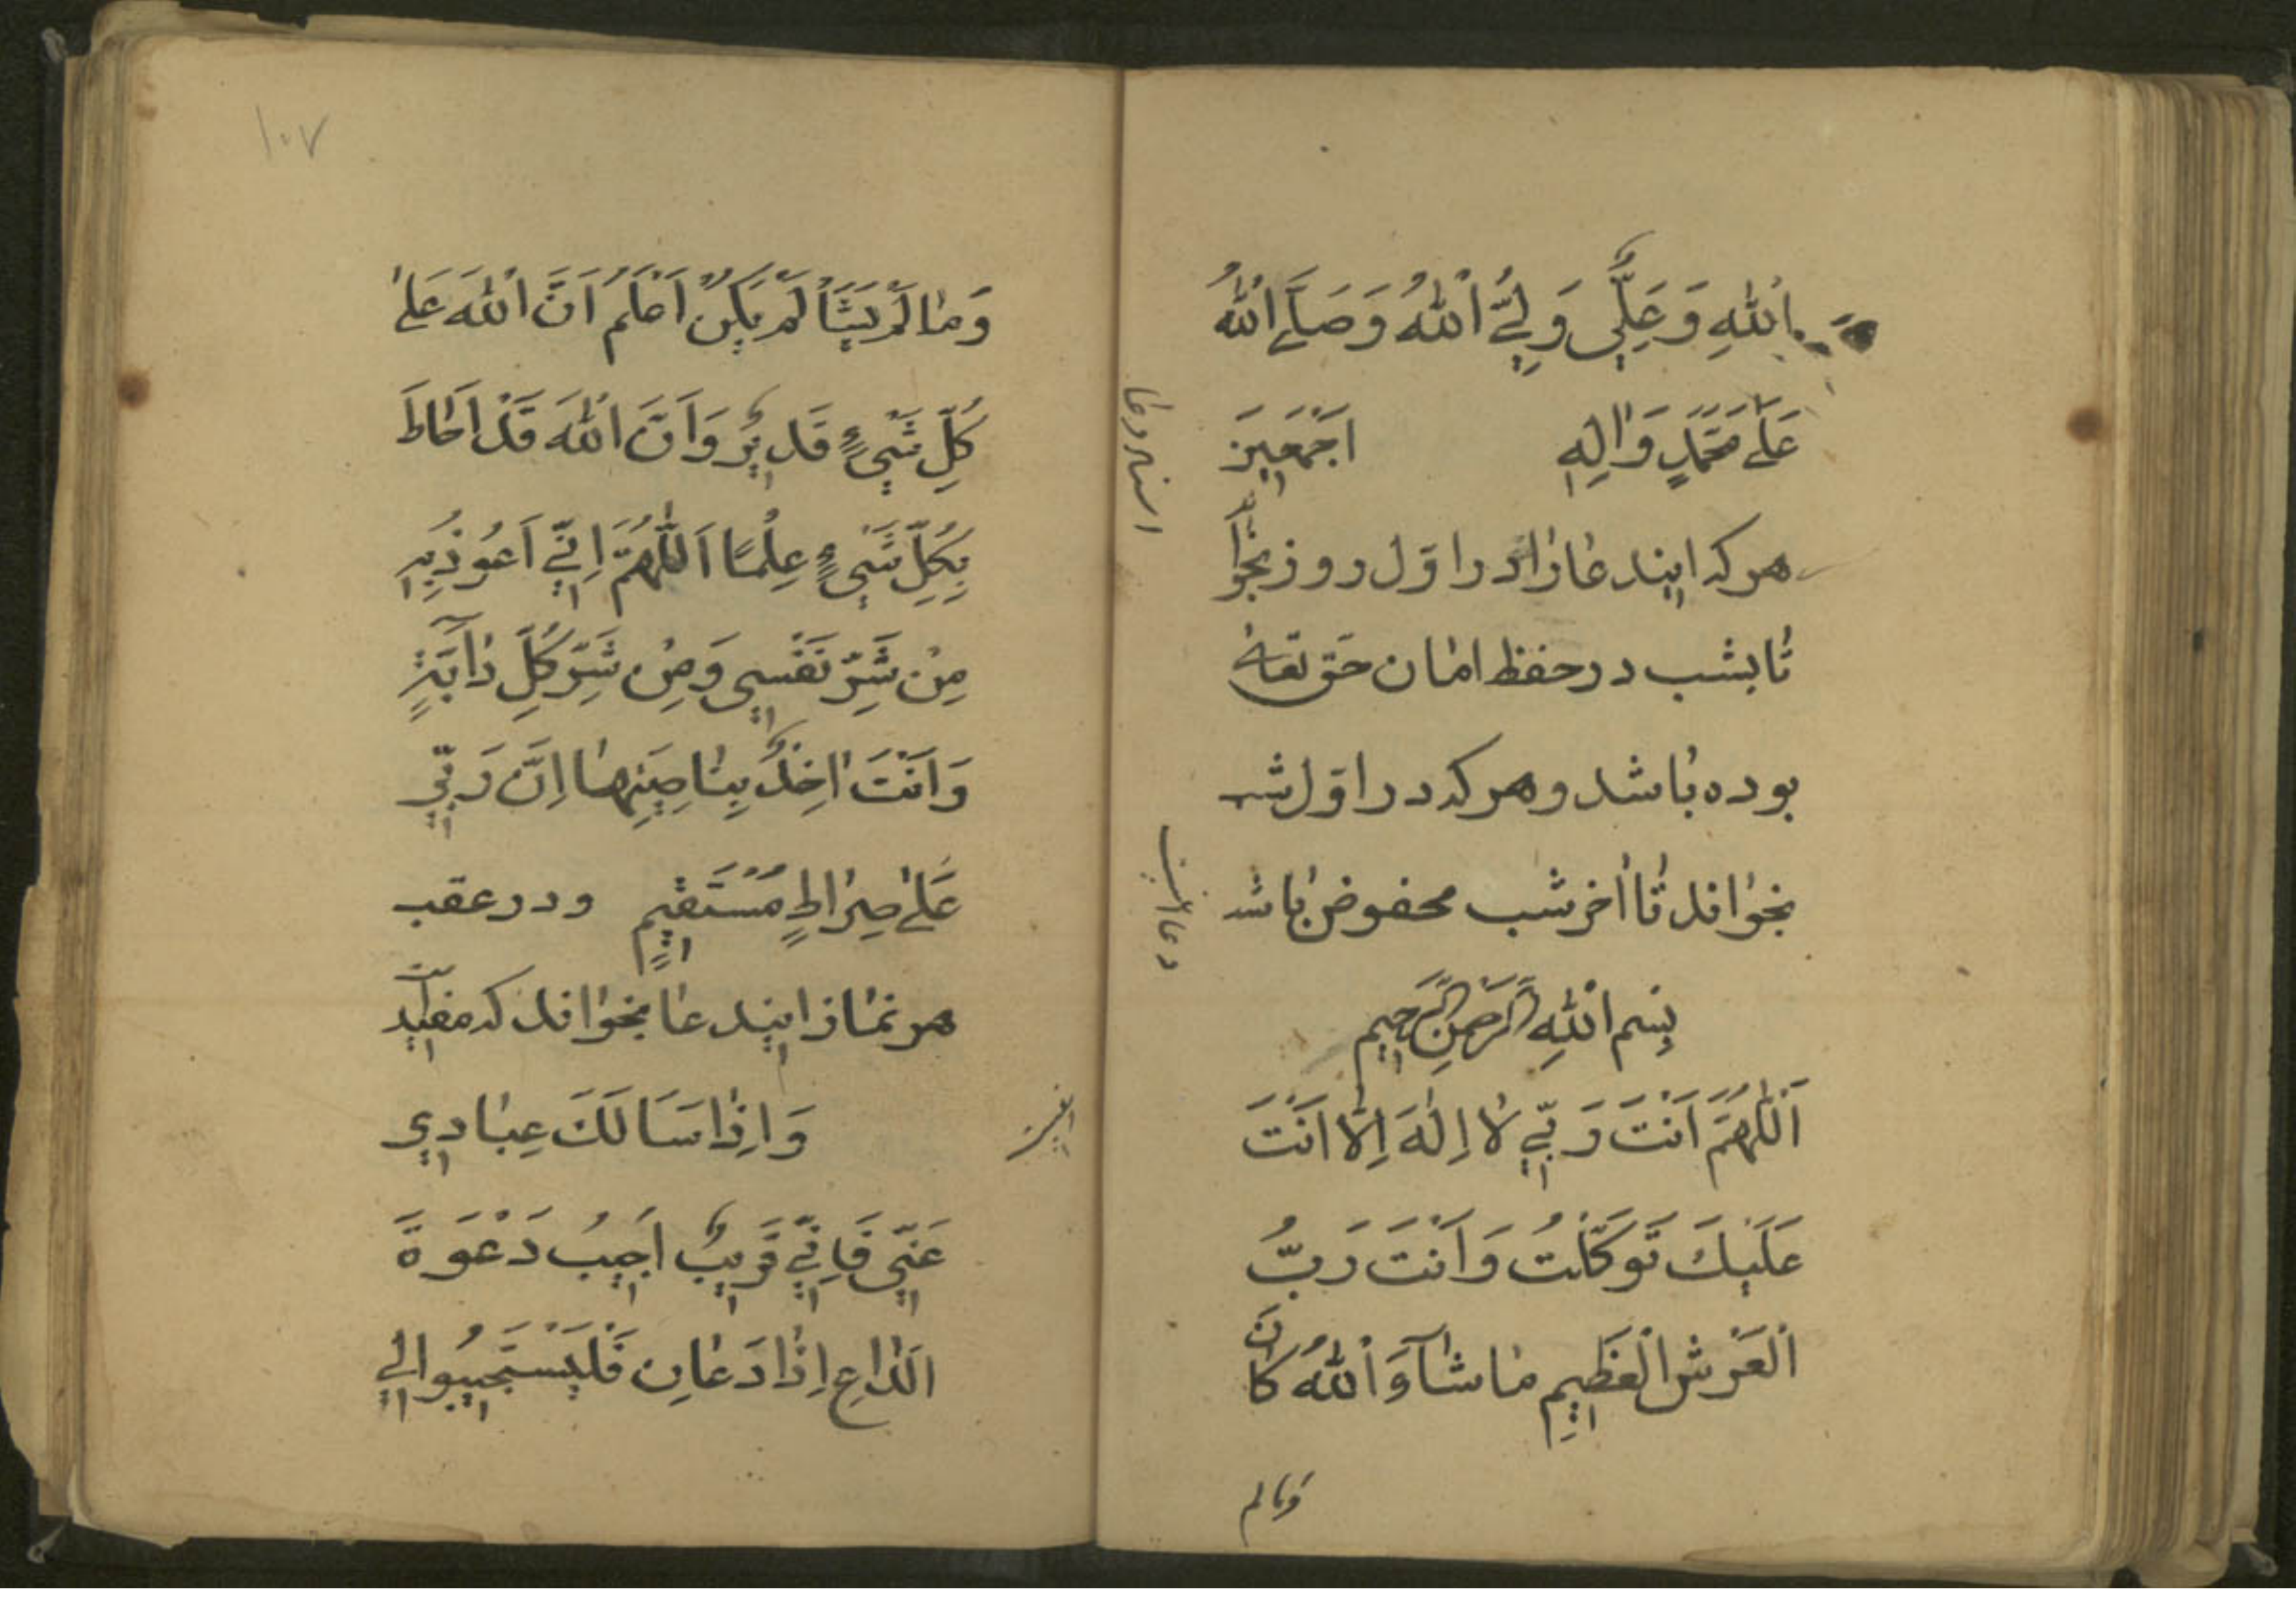 اللهِ وَعَلِيٌّ وَلِيُّ اللهُ وَصَلَّى اللهُ
عَلىٰ مُحَمَّدٍ وَاٰلِهِ اَجْمَعِينَ
هر که ایندعا را در اوّل روز بخواند
تا بشب در حفظ امان حق تعالیٰ
بوده باشد و هر که در اوّل شب
بخواند تا آخر شب محفوض باشد
بِسْمِ اللهِ الرَّحْمٰنِ الرَّحِيمِ
اَللّٰهُمَّ اَنْتَ رَبِّي لاٰ اِلٰهَ اِلاّٰ اَنْتَ
عَلَيْكَ تَوَكَّلْتُ وَاَنْتَ رَبُّ
الْعَرْشِ الْعَظِيمِ مٰا شٰآءَ اللهُ كٰانَ
وَمالم
١٠٧
وَمٰا لَمْ يَشَأْ لَمْ يَكُنْ اَعْلَمُ اَنَّ اللهَ عَلىٰ
كُلِّ شَيْءٍ قَدِيرٌ وَاَنَّ اللهَ قَدْ اَحٰاطَ
بِكُلِّ شَيْءٍ عِلْمًا اَللّٰهُمَّ اِنِّي اَعُوذُ بِكَ
مِنْ شَرِّ نَفْسِي وَمِنْ شَرِّ كُلِّ دٰآبَّةٍ
وَاَنْتَ اٰخِذٌ بِنٰاصِيَتِهٰا اِنَّ رَبِّي
عَلىٰ صِرٰاطٍ مُسْتَقِيمٍ و در عقب
هر نماز ایندعا بخواند که مفید است
وَاِذٰا سَاَلَكَ عِبٰادِي
عَنِّي فَاِنِّي قَرِيبٌ اُجِيبُ دَعْوَةَ
الدّٰاعِ اِذٰا دَعٰانِ فَلْيَسْتَجِيبُوا لِي